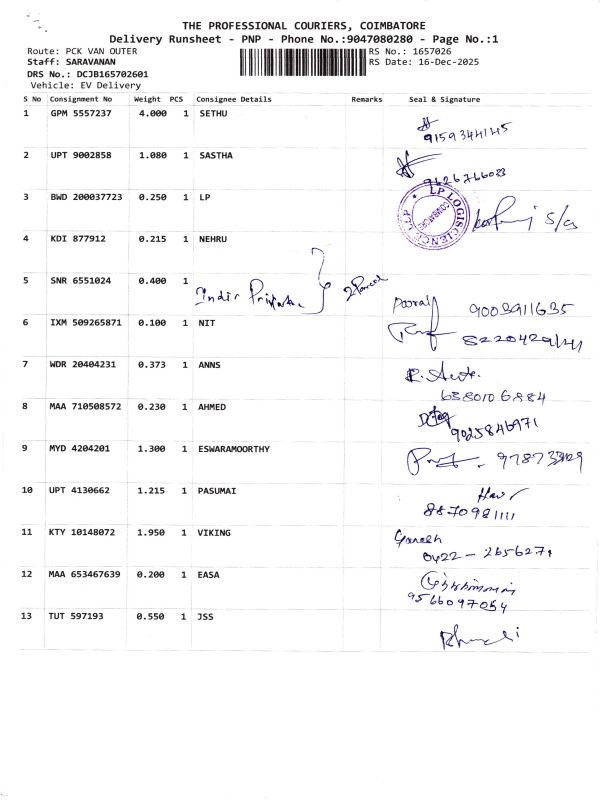 THE PROFESSIONAL COURIERS, COIMBATORE
Delivery Runsheet - PNP - Phone No.:9047080280 - Page No.:1
Route: PCK VAN OUTER RS No.: 1657026
Staff: SARAVANAN RS Date: 16-Dec-2025
DRS No.: DCJB165702601
Vehicle: EV Delivery
S No Consignment No Weight PCS Consignee Details Remarks Seal & Signature
1 GPM 5557237 4.000 1 SETHU
2 UPT 9002858 1.080 1 SASTHA
9626766083
3 BWD 200037723 0.250 1 LP
LP LOGISCIENCE LLP
COIMBATORE
4 KDI 877912 0.215 1 NEHRU
5 SNR 6551024 0.400 1
2 Parcel
9003911635
6 IXM 509265871 0.100 1 NIT
7 WDR 20404231 0.373 1 ANNS
8 MAA 710508572 0.230 1 AHMED
9025846971
9 MYD 4204201 1.300 1 ESWARAMOORTHY
10 UPT 4130662 1.215 1 PASUMAI
8870981111
11 KTY 10148072 1.950 1 VIKING
Ganesh
0422 - 2656271
12 MAA 653467639 0.200 1 EASA
9566097054
13 TUT 597193 0.550 1 JSS